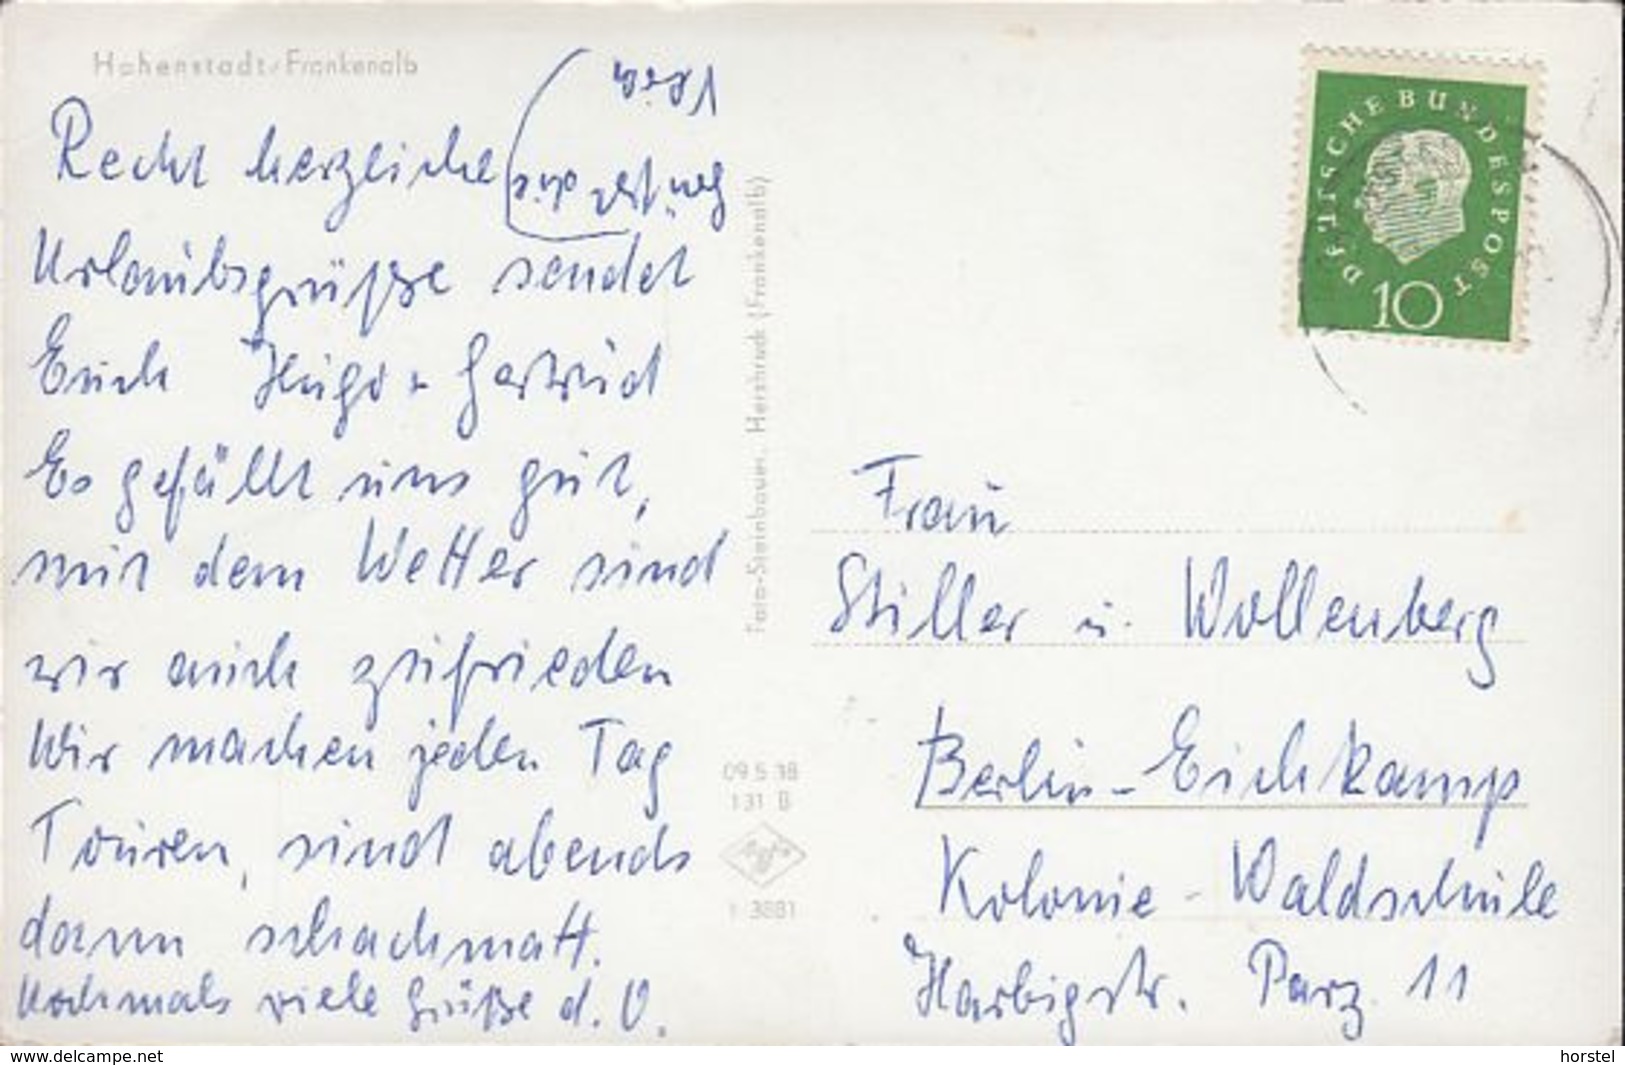 Hohenstadt/Frankenalb
Recht herzliche
Urlaubsgrüße sendet
Erich Hugo + Gertrud
Es gefällt uns gut,
mit dem Wetter sind
wir auch zufrieden
Wir machen jeden Tag
Touren, sind abends
dann schachmatt.
Nochmals viele Grüße d. O.
Foto-Steinbauer, Hersbruck (Frankenalb)
09 5 18
131 B
Agfa
1 3881
DEUTSCHE BUNDESPOST
10
Frau
Stiller u. Wollenberg
Berlin-Eichkamp
Kolonie-Waldschule
Harbigstr. Parz. 11
www.delcampe.net
horstel